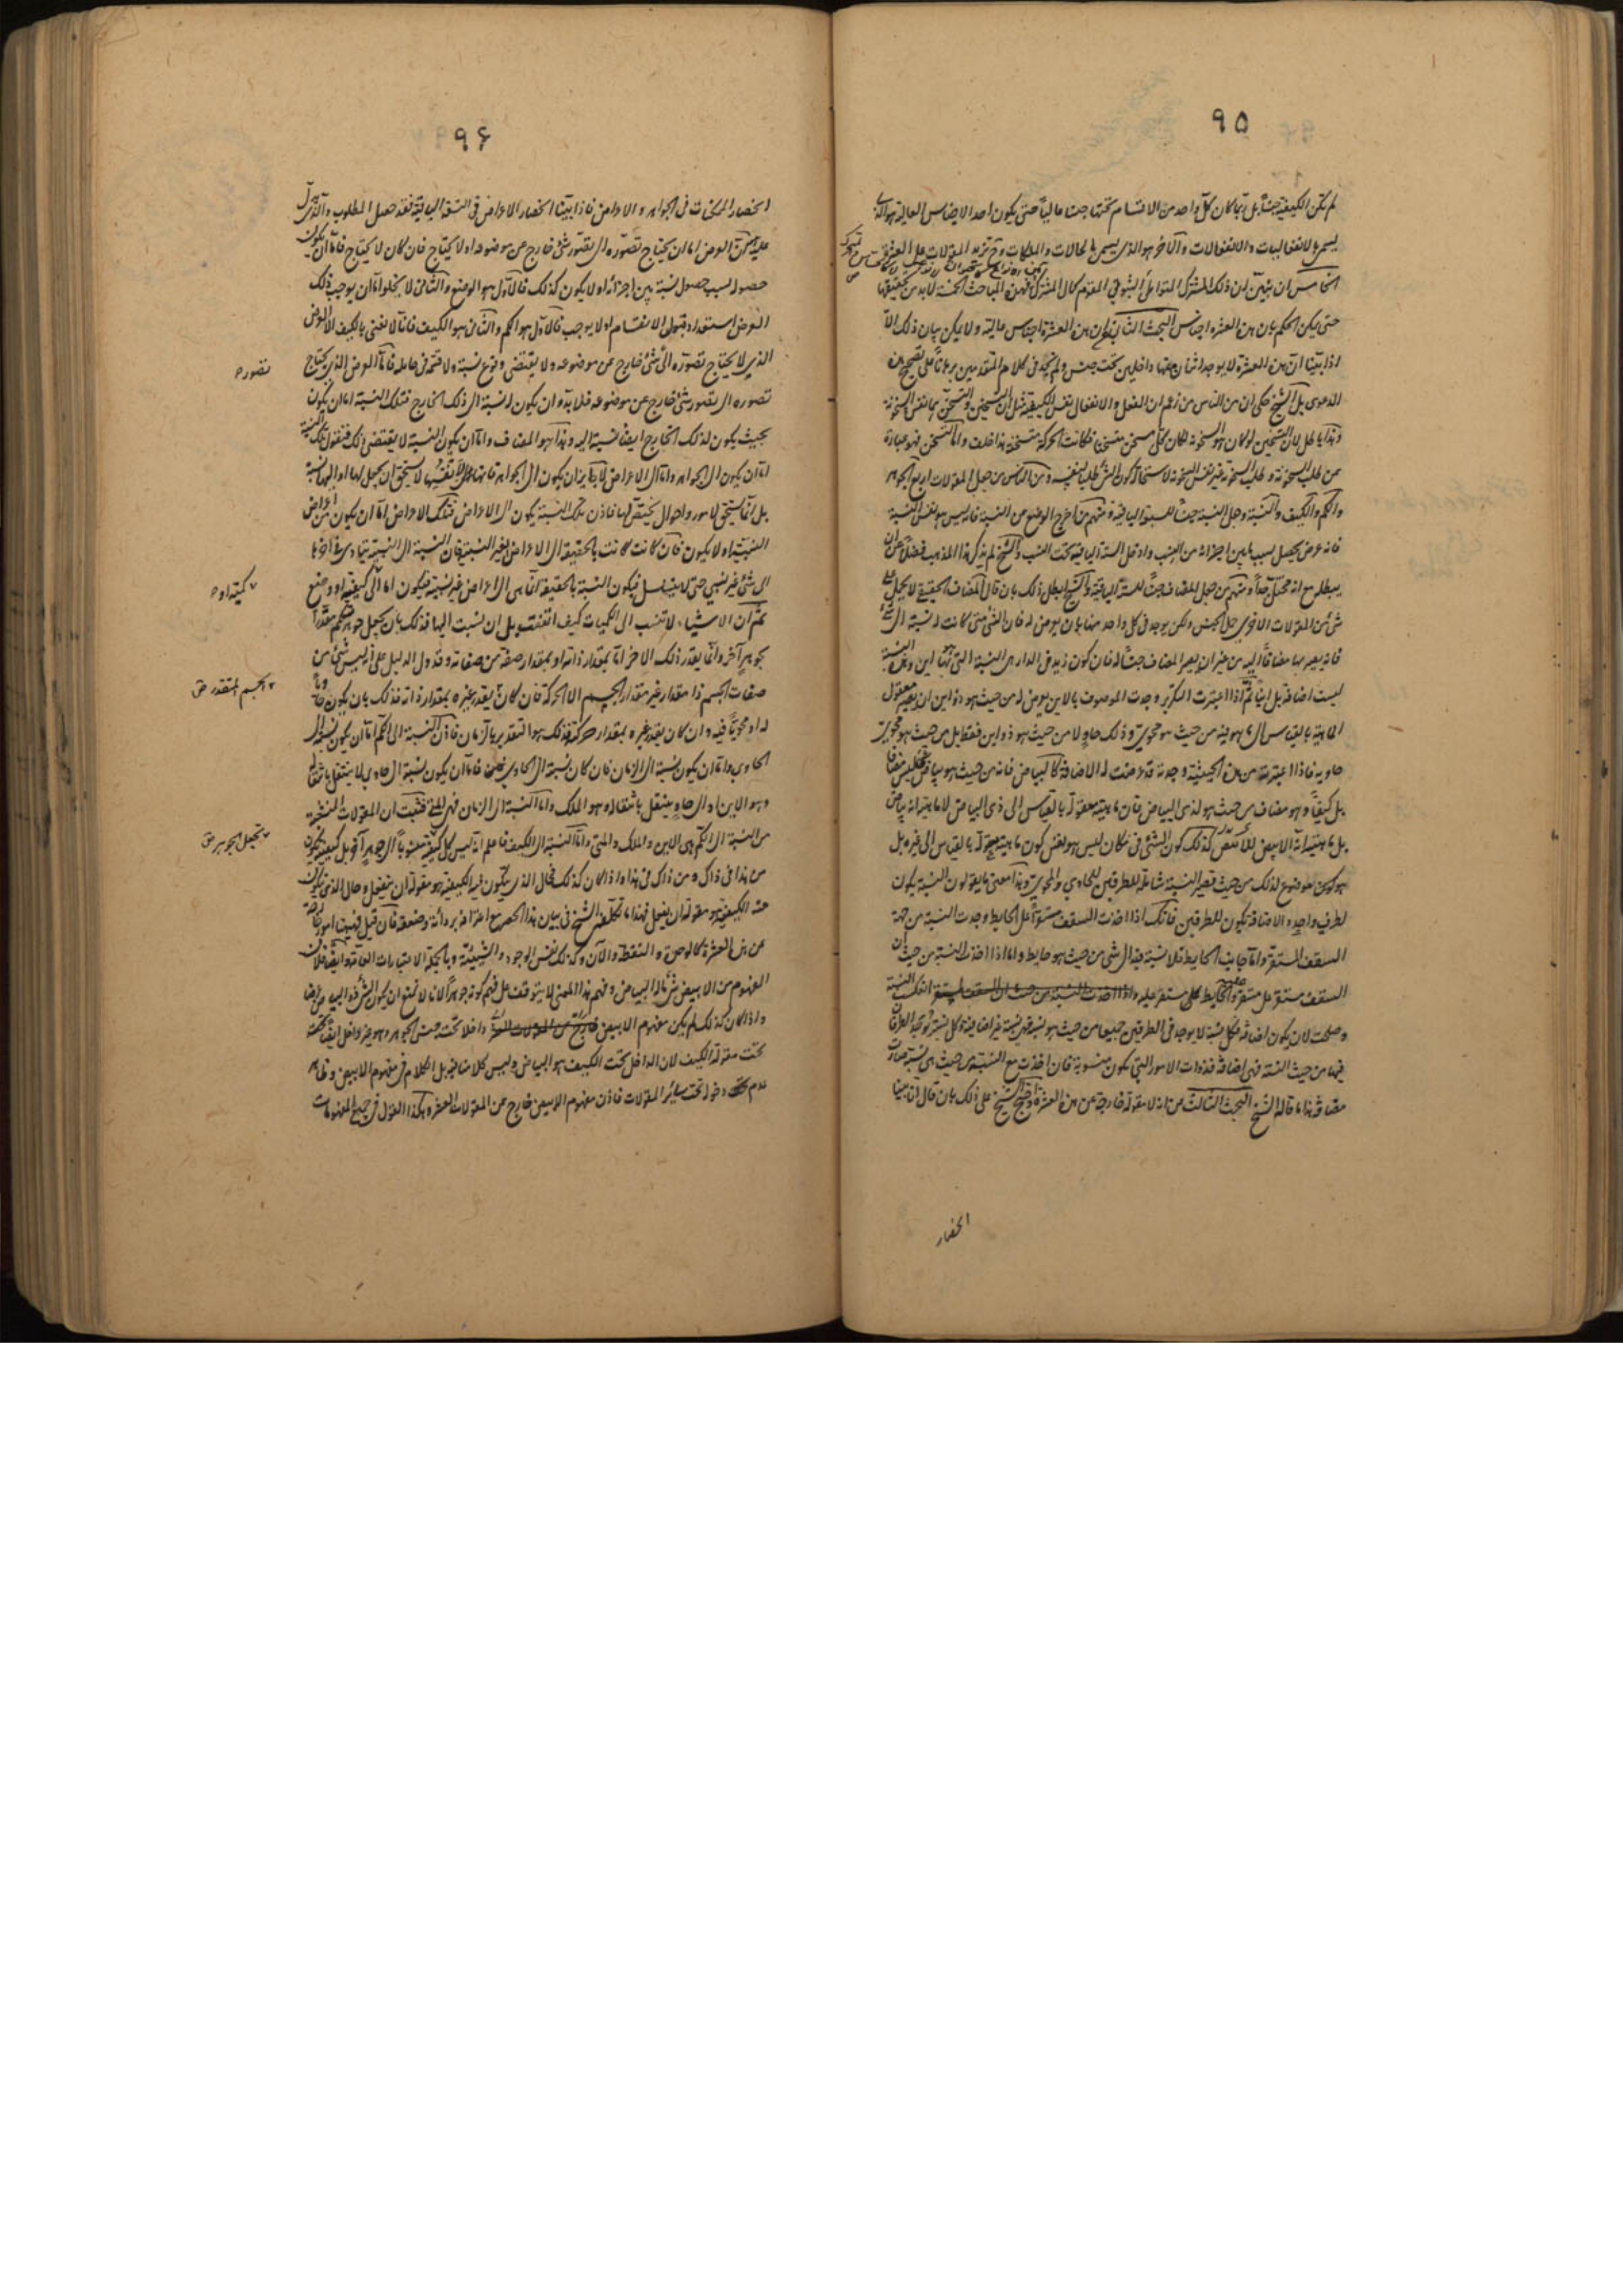 ٩٥
لم تكن الكيفية جنسا بل ربما كان كل واحد من الاقسام تحتها جنسا عاليا حتى يكون احد الاجناس العالية هو الذى
يسمى بالانفعاليات والانفعالات والآخر هو الذى يسمى بالحالات والملكات وح تزيد المقولات على العشرة
الخامس ان يتبين ان ذلك المشترك المتواطئ الثبوتى المقوم كمال المشترك فهذه المباحث الخمسة لابد من تحقيقها
حتى يمكن الحكم بان هذه العشرة اجناس البحث الثانى فى ان هذه العشرة اجناس عالية ولا يمكن بيان ذلك الا
اذا بينا ان هذه العشرة لا يوجد اثنان منها داخلين تحت جنس ولم نجد فى كلام المتقدمين برهانا على تصحيح هذه
الدعوى بل الشيخ حكى ان من الناس من زعم ان الفعل والانفعال نفس الكيفية مثل ان التسخين والتسخن هما نفس السخونة
وهذا باطل لان التسخين لو كان هو السخونة لكان كل مسخن متسخنا فكانت الحركة متسخنة هذا خلف واما التسخن فهو عبارة
عن طلب السخونة وطلب السخونة غير نفس السخونة لاستحالة كون الشئ طلبا لنفسه ومن الناس من جعل المقولات اربع الجوهر
والكم والكيف والنسبة وجعل النسبة جنسا للسبع الباقية ومنهم من اخرج الوضع من النسبة فانه ليس هو نفس النسبة
فانه عرض يحصل بسبب ما بين اجزائه من النسب وادخل الستة الباقية تحت النسب والشيخ لم يذكر هذا المذهب فضلا عن ان
يبطله مع انه محتمل جدا ومنهم من جعل المضاف جنسا للستة الباقية والشيخ ابطل ذلك بان قال المضاف الحقيقى لا يحمل على
شئ من المقولات الاخرى حمل الجنس ولكن يوجد فى كل واحد منها بان يعرض له فان الشئ متى كانت له نسبة الى شئ
فانه يصير بها مضافا اليه من غير ان يصير المضاف جنسا له فان كون زيد فى الدار هى النسبة التى بها اين وهذه النسبة
ليست اضافة بل اينا ثم اذا اعتبرت التكرير وجدت الموصوف بالاين يعرض له من حيث هو ذو اين ان يصير معقول
الماهية بالقياس الى ما هو فيه من حيث هو محوى وذلك حاو لا من حيث هو ذو اين فقط بل من حيث هو محوى
حاويه فاذا اعتبرته من هذه الحيثية وجدته قد عرضت له الاضافة كالبياض فانه من حيث هو بياض فليس مضافا
بل كيفا وهو مضاف من حيث هو لذى البياض فان ماهيته معقولة بالقياس الى ذى البياض لا ماهيته انه بياض
بل ماهيته انه الابيض للابيض كذلك كون الشئ فى مكان ليس هو نفس كون ماهيته معقولة بالقياس الى غيره بل
هو كون موضوع لذلك من حيث تصير النسبة شاملة للطرفين للحاوى والمحوى وهذا معنى ما يقولون النسبة يكون
لطرف واحد والاضافة يكون للطرفين فانك اذا اخذت السقف مستقرا على الحايط وجدت النسبة من جهة
السقف المستقر واما جانب الحايط فلا نسبة فيه الى شئ من حيث هو حايط واما اذا اخذت النسبة من حيث ان
السقف مستقر على مستقر والحايط على مستقر عليه انعكست النسبة
وصلحت لان يكون اضافة فكل نسبة لا يوجد فى الطرفين جميعا من حيث هو نسبة فهى نسبة غير اضافية وكل نسبة يوجد الطرفان
فيها من حيث النسبة فهى اضافة فذوات الامور التى تكون منسوبة فان اخذت مع النسبة من حيث هى نسبة صارت
مضافة هذا ما قاله الشيخ البحث الثالث من انه لا مقولة خارجة عن هذه العشرة واحتج الشيخ على ذلك بان قال انا بينا
انحصار
٩٦
انحصار الممكنات فى الجواهر والاعراض فاذا بينا انحصار الاعراض فى التسعة الباقية فقد حصل المطلوب والذى يدل
عليه ان العرض اما ان يحتاج تصوره الى تصور شئ خارج عن موضوعه او لا يحتاج فان كان لا يحتاج فاما ان يكون
حصوله بسبب حصول نسبة بين اجزائه او لا يكون كذلك فالاول هو الوضع والثانى لا يخلو اما ان يوجب ذلك
العرض استعداد قبول الانقسام او لا يوجب فالاول هو الكم والثانى هو الكيف فانا لا نعنى بالكيف الا العرض
الذى لا يحتاج تصوره الى شئ خارج عن موضوعه ولا يقتضى وقوع نسبة ولا قسمة فى حامله فاما العرض الذى يحتاج
تصوره
تصوره الى تصور شئ خارج عن موضوعه فلا بد وان يكون له نسبة الى ذلك الخارج فتلك النسبة اما ان يكون
بحيث يكون لذلك الخارج ايضا نسبة اليه وهذا هو المضاف واما ان يكون النسبة لا يقتضى ذلك فنقول تلك النسبة
اما ان يكون الى الجواهر واما الى الاعراض لا جايز ان يكون الى الجواهر فانها لانفسها لا يستحق ان يجعل لها او اليها نسبة
بل انما يستحق لامور واحوال يختص لها فاذن تلك النسبة يكون الى الاعراض فتلك الاعراض اما ان يكون من اعراض
النسبية او لا يكون فان كانت كانت بالحقيقة الى الاعراض لغير النسبية فان النسبة الى النسبة يتمادى فى اخرها
الى شئ غير نسبى حتى لا يتسلسل فيكون النسبة بالحقيقة انما هى الى اعراض غير نسبية فيكون اما الى كيفية او وضع
كمية او
ثم ان الاشياء لا تنسب الى الكميات كيف اتفقت بل ان نسبت اليها فذلك بان يجعل جوهر متقدرا
بجوهر آخر وانما يقدر ذلك الاخر اما بمقدار ذاته او بمقدار صفة من صفاته وقد دل الدليل على ان ليس شئ من
صفات الجسم ذا مقدار غير مقدار الجسم الا الحركة فان كان يقدر غيره بمقدار ذاته فذلك بان يكون حاويا
الجسم المتقدر
له او محويا فيه وان كان يقدر غيره بمقدار حركته فذلك هو التقدير بالزمان فاذن النسبة الى الكم اما ان يكون نسبة الى
الحاوى واما ان يكون نسبة الى الزمان فان كان نسبة الى الحاوى فاما ان يكون نسبة الى حاوى لا ينتقل بانتقاله
وهو الاين او الى حاو ينتقل بانتقاله وهو الملك واما النسبة الى الزمان فهى المتى فثبت ان المقولات المتشعبة
من النسبة الى الكم هى الاين والملك والمتى واما النسبة الى الكيف فاعلم انه ليس كل كيفية منسوبا الى جوهر آخر بل كيفية يكون
يجعل الجوهر
من هذا فى ذاك ومن ذاك فى هذا واذا كان كذلك فحال الذى يتكون فيه الكيفية هو مقولة ان ينفعل وحال الذى يتكون
عنه الكيفية هو مقولة ان يفعل فهذا ما تكلفه الشيخ فى بيان هذا الحصر مع اعترافه برداءته وضعفه فان قيل فههنا امور خارجة
عن هذه العشرة كالوحدة والنقطة والآن وكذلك نفس الوجود والشيئية وبالجملة الاعتبارات العامة وايضا فلان
المفهوم من الابيض شئ له البياض وفهم هذا المعنى لا يتوقف على فهم كونه جوهرا لانا لا نمنع ان يكون الشئ ذو البياض عرضا
واذا كان كذلك لم يكن مفهوم الابيض داخلا تحت جنس الجوهر وهو غير داخل ايضا
تحت مقولة الكيف لان الداخل تحت الكيف هو البياض وليس كلامنا فيه بل الكلام فى مفهوم الابيض وظاهر
عدم دخوله تحت سائر المقولات فاذن مفهوم الابيض خارج عن المقولات العشرة وهكذا القول فى جميع المفهومات